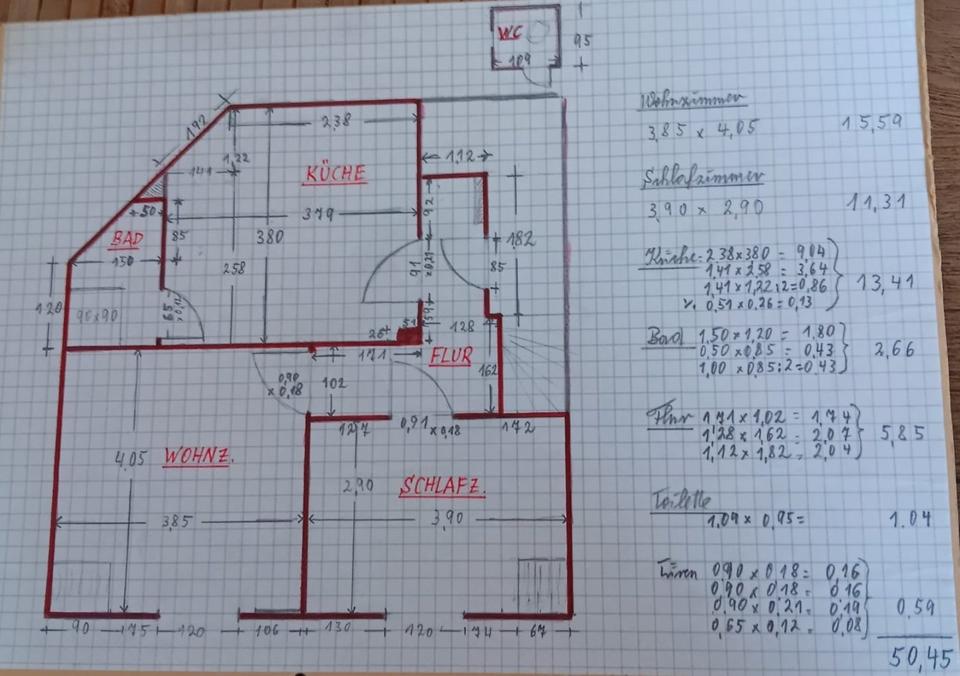 WC
95
109
192
2,38
1,22
141
KÜCHE
112
50
379
92
BAD
85
380
182
150
258
91 x 0,21
85
120
90x90
65 x 0,12
59
51
26
128
171
FLUR
0,90 x 0,18
102
162
127
0,91 x 0,18
172
4,05
WOHNZ.
2,90
SCHLAFZ.
3,85
3,90
90
175
120
106
130
120
174
67
Wohnzimmer
3,85 x 4,05 15,59
Schlafzimmer
3,90 x 2,90 11,31
Küche: 2,38x380 = 9,04
1,41 x 2,58 = 3,64
1,41 x 1,22:2=0,86 13,41
0,51 x 0,26 = 0,13
Bad 1,50 x 1,20 = 1,80
0,50 x 0,85 = 0,43 2,66
1,00 x 0,85:2=0,43
Flur 1,71 x 1,02 = 1,74
1,28 x 1,62 = 2,07 5,85
1,12 x 1,82 = 2,04
Toilette
1,09 x 0,95= 1.04
Türen 0,90 x 0,18 = 0,16
0,90 x 0,18 = 0,16
0,90 x 0,21 = 0,19 0,59
0,65 x 0,12 = 0,08
50,45